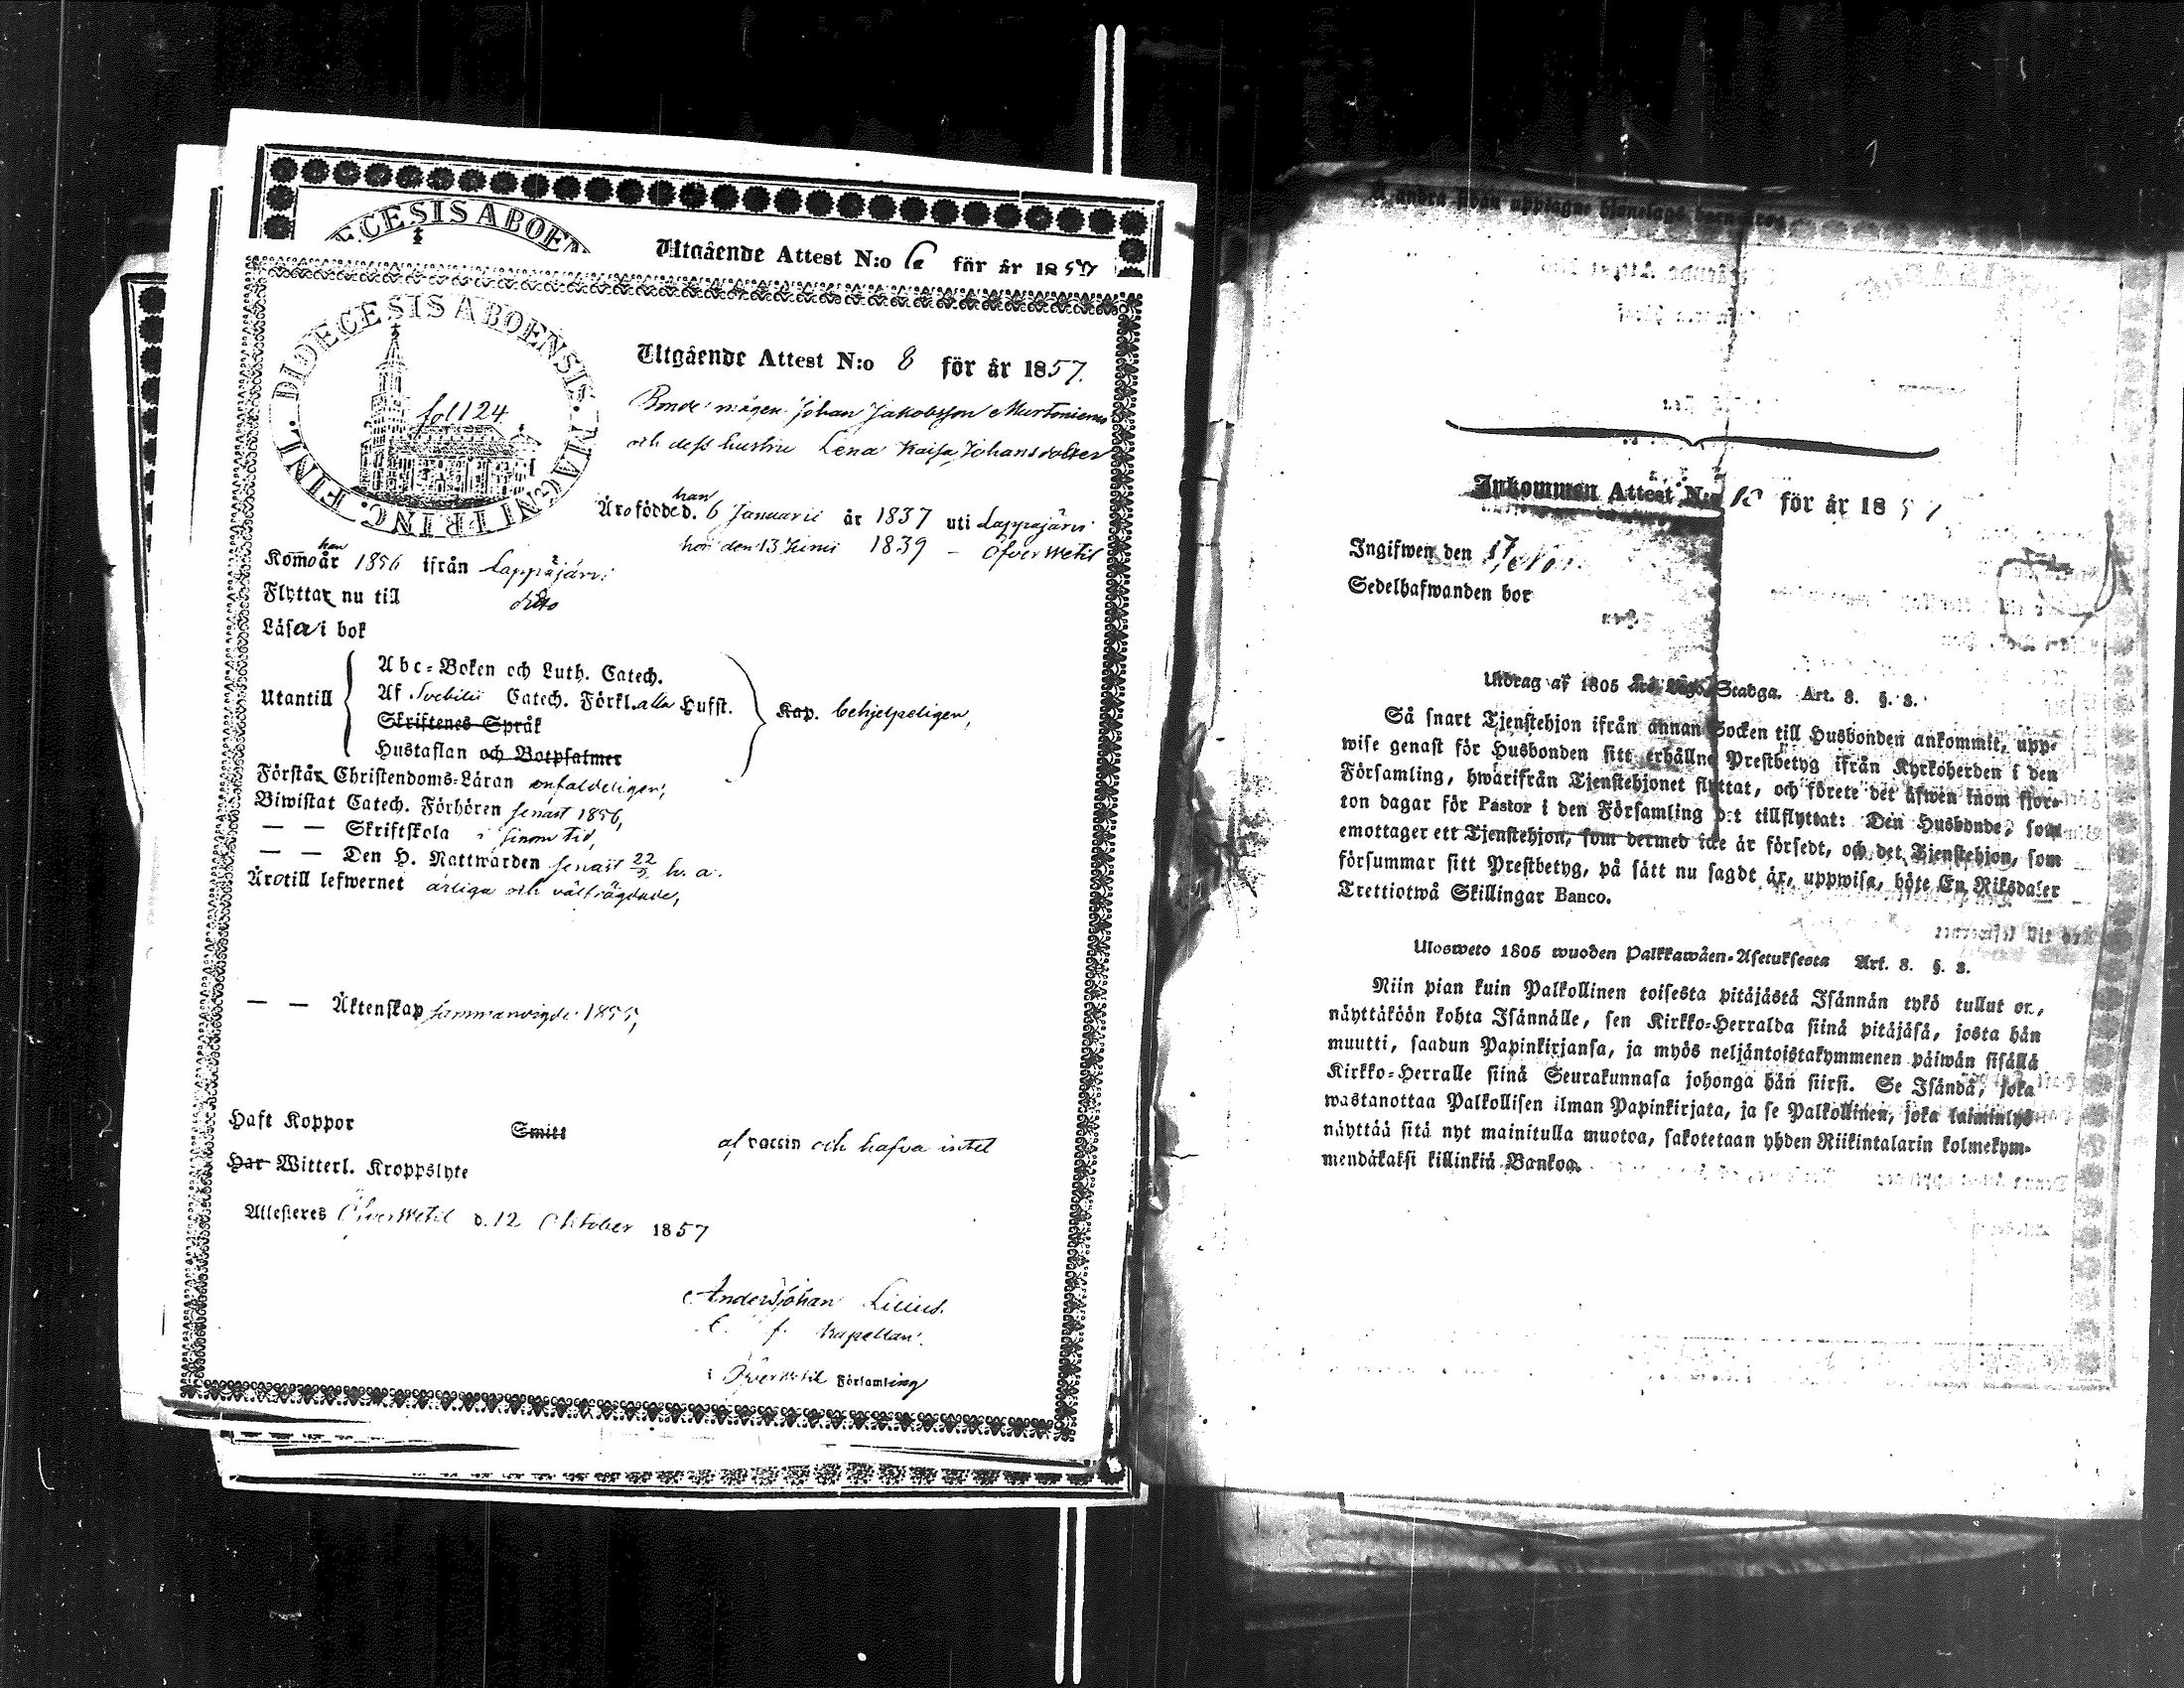 Utgående Attest N:o 6 för år 1857
DIŒCESIS ABOENSIS. MAGNI PRINC. FINL.
fol 124
Utgående Attest N:o 8 för år 1857.
Bonde mågen Johan Jakobsson Murtoniemi
och dess hustru Lena Kaisa Johansdotter
han
Äro födde d. 6 Januarii år 1837 uti Lappajärvi
hon den 13 Junii 1839 – Öfver Wetil
han
Kommo år 1856 ifrån Lappajärvi
Flyttar nu till dito
Läsa i bok
Utantill
Abc-Boken och Luth. Catech.
Af Svebilii Catech. Förkl. alla Husst.
Skriftenes Språk
Hustaflan och Botpsalmer
Kap. behjelpeligen,
Förstår Christendoms-Läran enfaldeligen,
Biwistat Catech. Förhören senast 1856,
— — Skriftskola i sinom tid,
— — Den H. Nattwarden senast 22/9 h. a.
Äro till lefwernet ärliga och välfrägdade,
— — Äktenskap sammanvigde 1855,
Haft Koppor Smitt af vaccin och hafva intet
Har Witterl. Kroppslyte
Attesteres Öfver Wetil d. 12 Oktober 1857
Anders Johan Licius.
E. f. Kapellan.
i Öfver Wetil Församling
Inkommen Attest N:o för år 1857
Ingifwen den 17 Nov.
Sedelhafwanden bor
Utdrag af 1805 Stadga. Art. 8. §. 3.
Så snart Tjenstehjon ifrån annan Socken till Husbonden ankommit, upp-
wise genast för Husbonden sitt erhållne Prestbetyg ifrån Kyrkoherden i den
Församling, hwarifrån Tjenstehjonet flyttat, och förete det äfwen inom fjor-
ton dagar för Pastor i den Församling det tillflyttat: Den Husbonde, som
emottager ett Tjenstehjon, som dermed icke är försedt, och det Tjenstehjon, som
försummar sitt Prestbetyg, på sätt nu sagdt är, uppwisa, böte En Riksdaler
Trettiotwå Skillingar Banco.
Ulosweto 1805 wuoden Palkkawäen-Asetuksesta Art. 8. §. 3.
Niin pian kuin Palkollinen toisesta pitäjästä Isännän tykö tullut on,
näyttäköön kohta Isännälle, sen Kirkko-Herralda siinä pitäjäsä, josta hän
muutti, saadun Papinkirjansa, ja myös neljäntoistakymmenen päiwän sisällä
Kirkko-Herralle siinä Seurakunnasa johonga hän siirsi. Se Isändä, joka
wastanottaa Palkollisen ilman Papinkirjata, ja se Palkollinen, joka laiminlyö
näyttää sitä nyt mainitulla muotoa, sakotetaan yhden Riikintalarin kolmekym-
mendäkaksi killinkiä Bankoa.